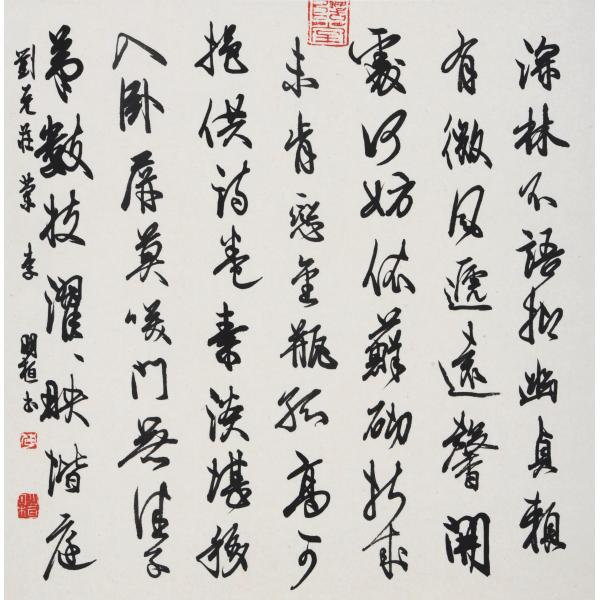 深林不語抱幽貞賴
有微風遞遠馨開
處何妨依蘚砌折來
未肯戀金瓶孤高可
挹供詩卷素淡堪移
入卧屏莫笑門無佳子
弟數枝濯、映階庭
劉克莊 李明書